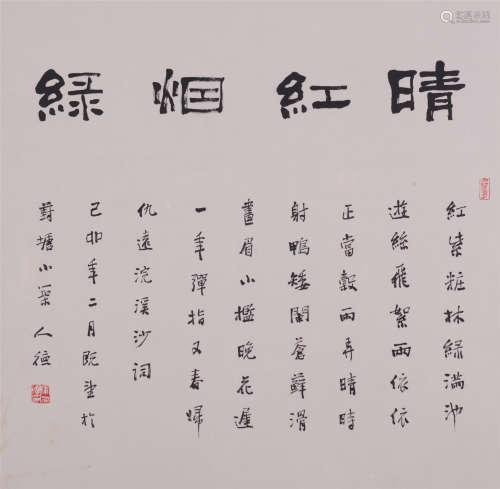 晴紅烟綠
紅紫粧林綠滿池
遊絲飛絮兩依依
正當穀雨弄晴時
射鴨矮闌蒼蘚滑
畫眉小檻晚花遲
一年彈指又春歸
仇遠浣溪沙詞
己卯年二月既望於
蒋塘小築人德